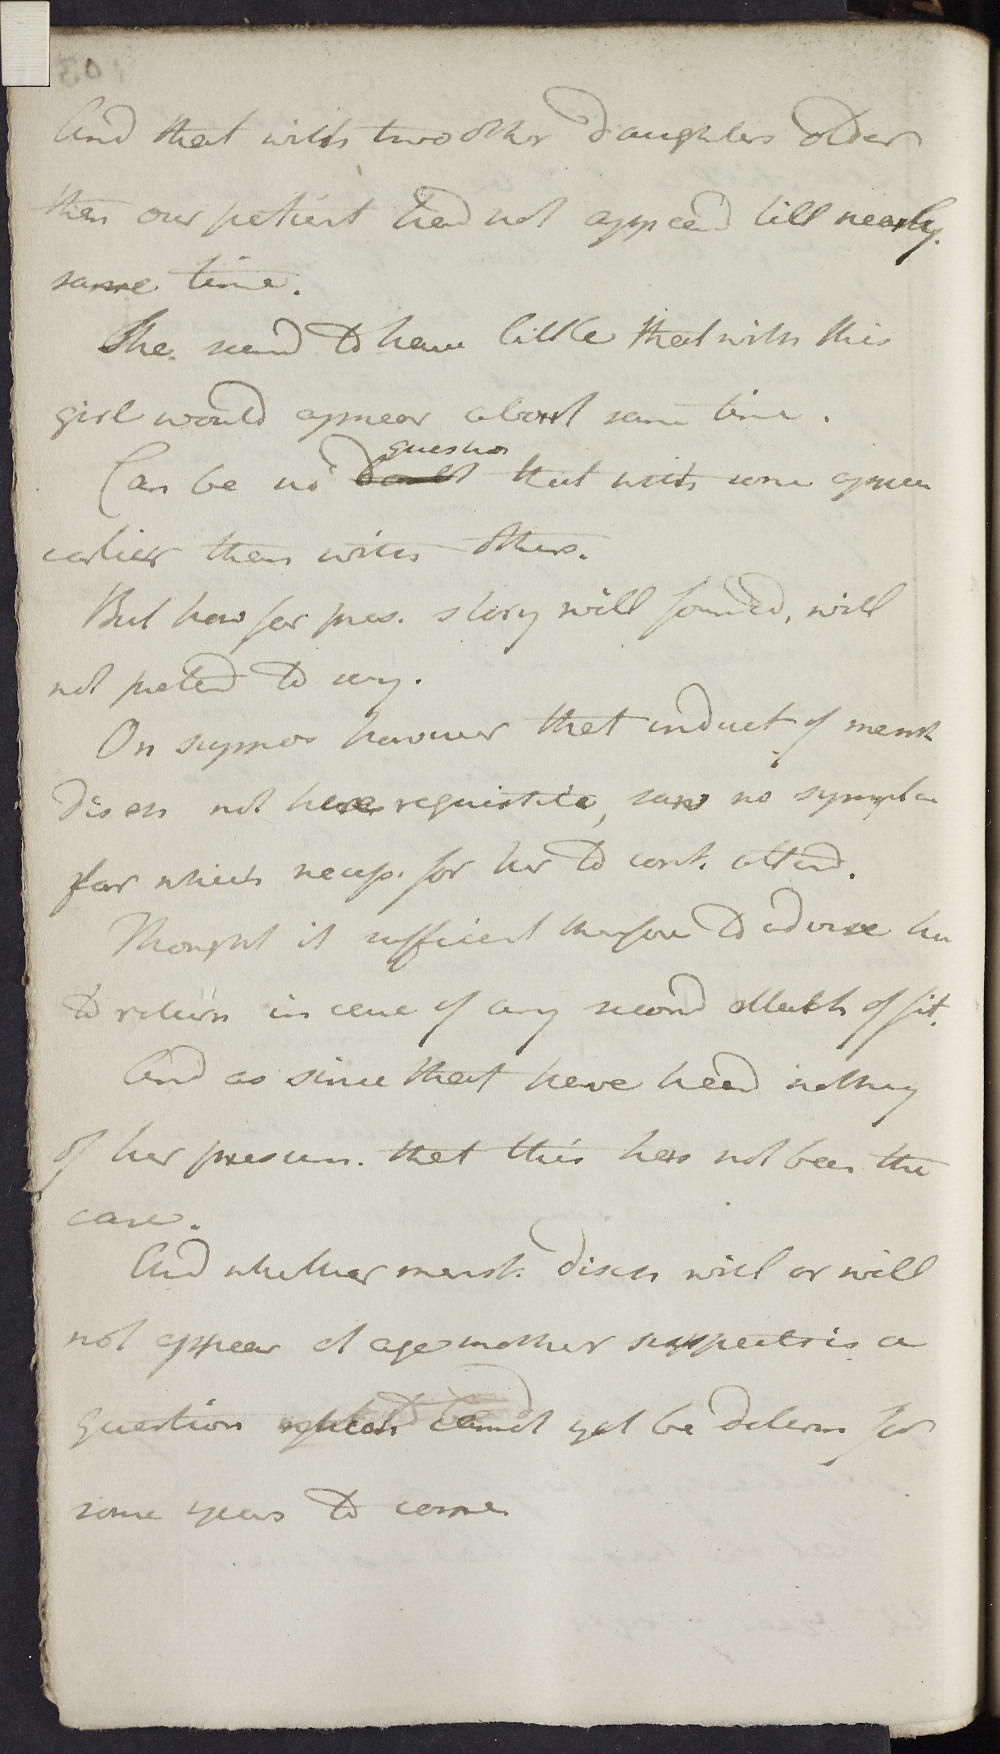 And that with two other daughters older
than our patient had not appeard till nearly
same time.
She. seemd to have little that with this
girl would appear about same time.
Can be no question that with some appear
earlier than with others.
But how far pres. story well founded, will
not pretend to say.
On suppos however that induct of menst
disch not here requisite, saw no symptom
for which necess. for her to cont. attend.
Thought it sufficient therefore to advise her
to return in case of any second attack of fit.
And as since that have heard nothing
of her presum. that this has not been the
case.
And whether menst. disch will or will
not appear at age mother suspects is a
question which cannot yet be determ for
some years to come